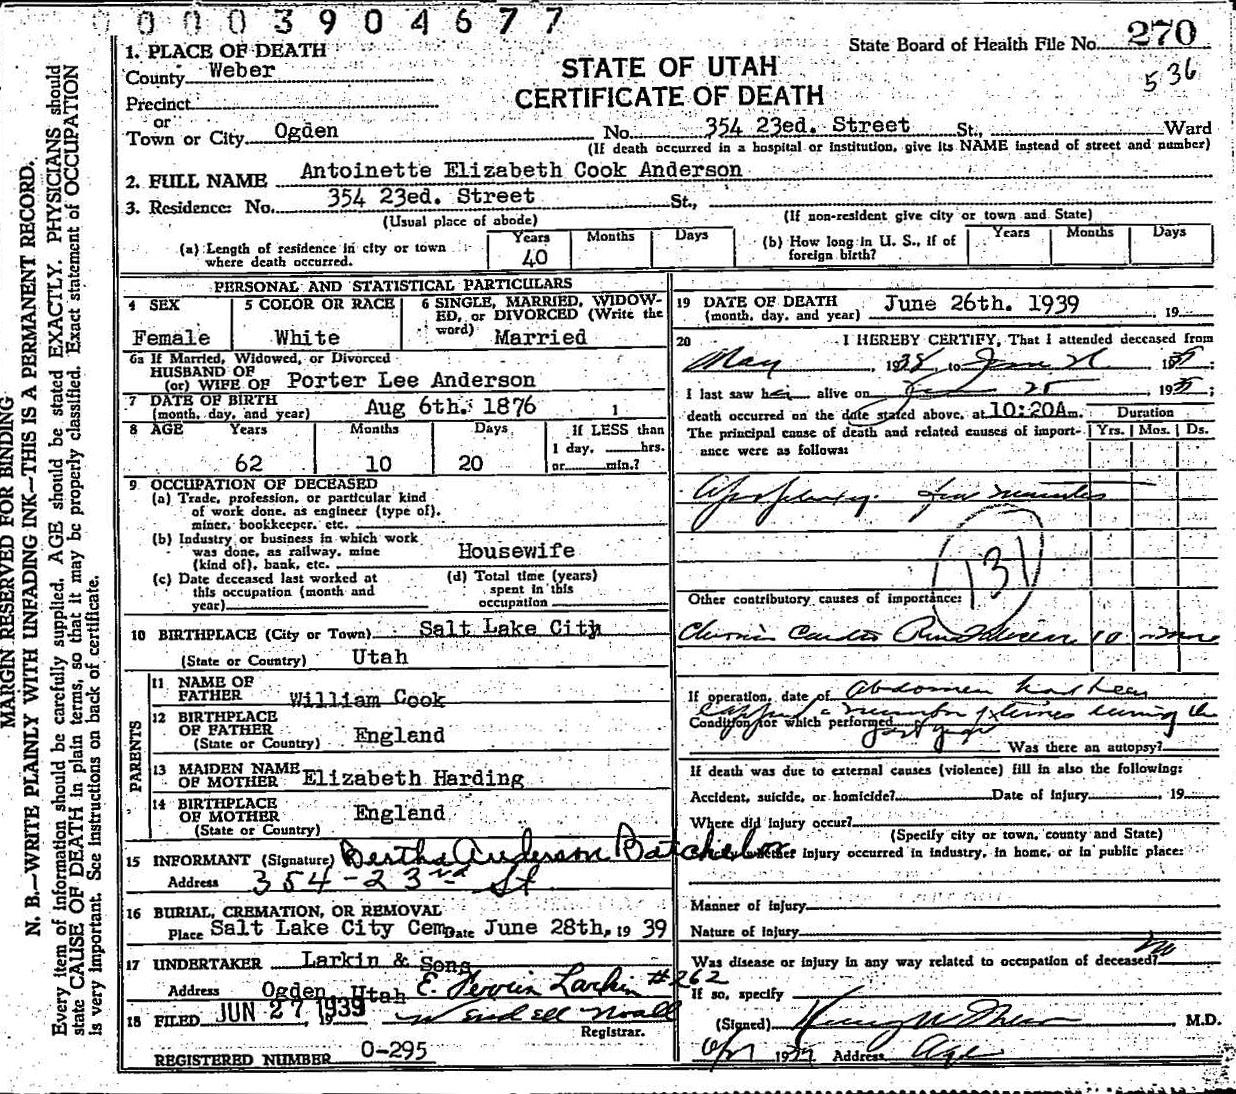 0003904677
State Board of Health File No. 270
536
STATE OF UTAH
CERTIFICATE OF DEATH
1. PLACE OF DEATH
County Weber
Precinct
or
Town or City Ogden No. 354 23ed. Street St., Ward
(If death occurred in a hospital or institution, give its NAME instead of street and number)
2. FULL NAME Antoinette Elizabeth Cook Anderson
3. Residence: No. 354 23ed. Street St.,
(Usual place of abode) (If non-resident give city or town and State)
(a) Length of residence in city or town where death occurred. Years 40 Months Days (b) How long in U. S., if of foreign birth? Years Months Days
PERSONAL AND STATISTICAL PARTICULARS
4 SEX Female
5 COLOR OR RACE White
6 SINGLE, MARRIED, WIDOWED, or DIVORCED (Write the word) Married
6a If Married, Widowed, or Divorced
HUSBAND OF
(or) WIFE OF Porter Lee Anderson
7 DATE OF BIRTH
(month, day, and year) Aug 6th. 1876 1
8 AGE Years 62 Months 10 Days 20 If LESS than 1 day, hrs. or min.?
9 OCCUPATION OF DECEASED
(a) Trade, profession, or particular kind
of work done, as engineer (type of),
miner, bookkeeper, etc.
(b) Industry or business in which work
was done, as railway, mine
(kind of), bank, etc. Housewife
(c) Date deceased last worked at
this occupation (month and
year)
(d) Total time (years)
spent in this
occupation
10 BIRTHPLACE (City or Town) Salt Lake City
(State or Country) Utah
PARENTS
11 NAME OF
FATHER William Cook
12 BIRTHPLACE
OF FATHER England
(State or Country)
13 MAIDEN NAME
OF MOTHER Elizabeth Harding
14 BIRTHPLACE
OF MOTHER England
(State or Country)
15 INFORMANT (Signature) Bertha Anderson Batchelor
Address 354-23rd St
16 BURIAL, CREMATION, OR REMOVAL
Place Salt Lake City Cem Date June 28th, 1939
17 UNDERTAKER Larkin & Sons
Address Ogden, Utah E. Larkin #262
18 FILED JUN 27 1939, 19 Wendell Noall
Registrar.
REGISTERED NUMBER O-295
19 DATE OF DEATH
(month, day, and year) June 26th. 1939 , 19
20 I HEREBY CERTIFY, That I attended deceased from
May , 1938, to June 26 1939;
I last saw her alive on June 25 1939;
death occurred on the date stated above, at 10:20Am. Duration
The principal cause of death and related causes of importance were as follows: Yrs. Mos. Ds.
Apoplexy. few minutes
131
Other contributory causes of importance:
Chronic Cardio 10 or more
If operation, date of Abdomen had been
tapped a number of times during the
Condition for which performed past year
Was there an autopsy?
If death was due to external causes (violence) fill in also the following:
Accident, suicide, or homicide? Date of injury , 19
Where did injury occur?
(Specify city or town, county and State)
whether injury occurred in industry, in home, or in public place:
Manner of injury
Nature of injury
Was disease or injury in any way related to occupation of deceased? No
If so, specify
(Signed) M.D.
1939 Address
MARGIN RESERVED FOR BINDING
N. B.—WRITE PLAINLY WITH UNFADING INK—THIS IS A PERMANENT RECORD.
Every item of information should be carefully supplied. AGE should be stated EXACTLY. PHYSICIANS should
state CAUSE OF DEATH in plain terms, so that it may be properly classified. Exact statement of OCCUPATION
is very important. See instructions on back of certificate.